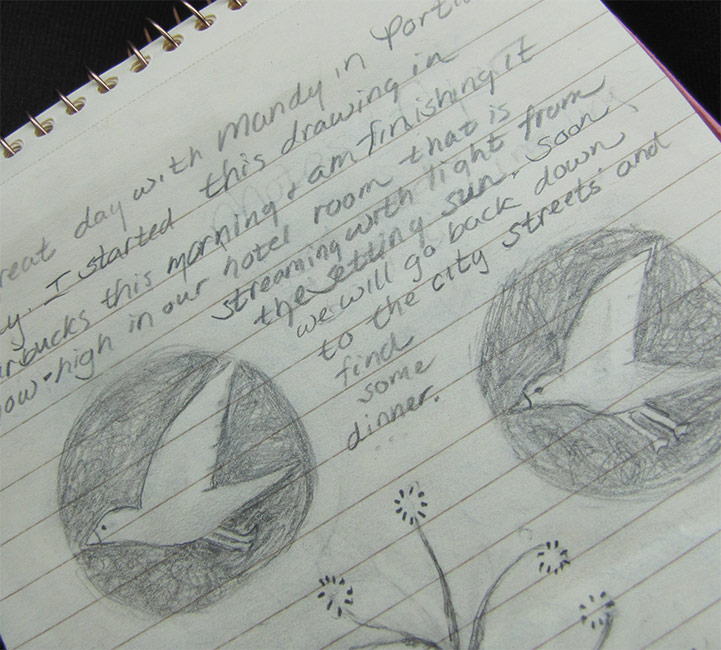 reat day with Mandy in Portl
y. I started this drawing in
arbucks this morning & am finishing it
now-high in our hotel room that is
streaming with light from
the setting sun. Soon
we will go back down
to the city streets and
find
some
dinner.
...